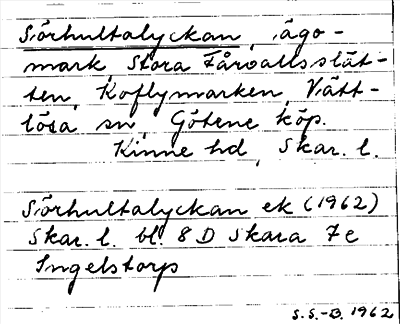 Sörhultalyckan, ägo-
mark, Stora Fåroallsslät-
ten, Koflymarken, Vätt-
lösa sn, Götene köp.
Kinne hd, Skar. l.
Sörhultalyckan ek (1962)
Skar. l. bl. 8 D Skara 7e
Ingelstorp
S.S.-B. 1962